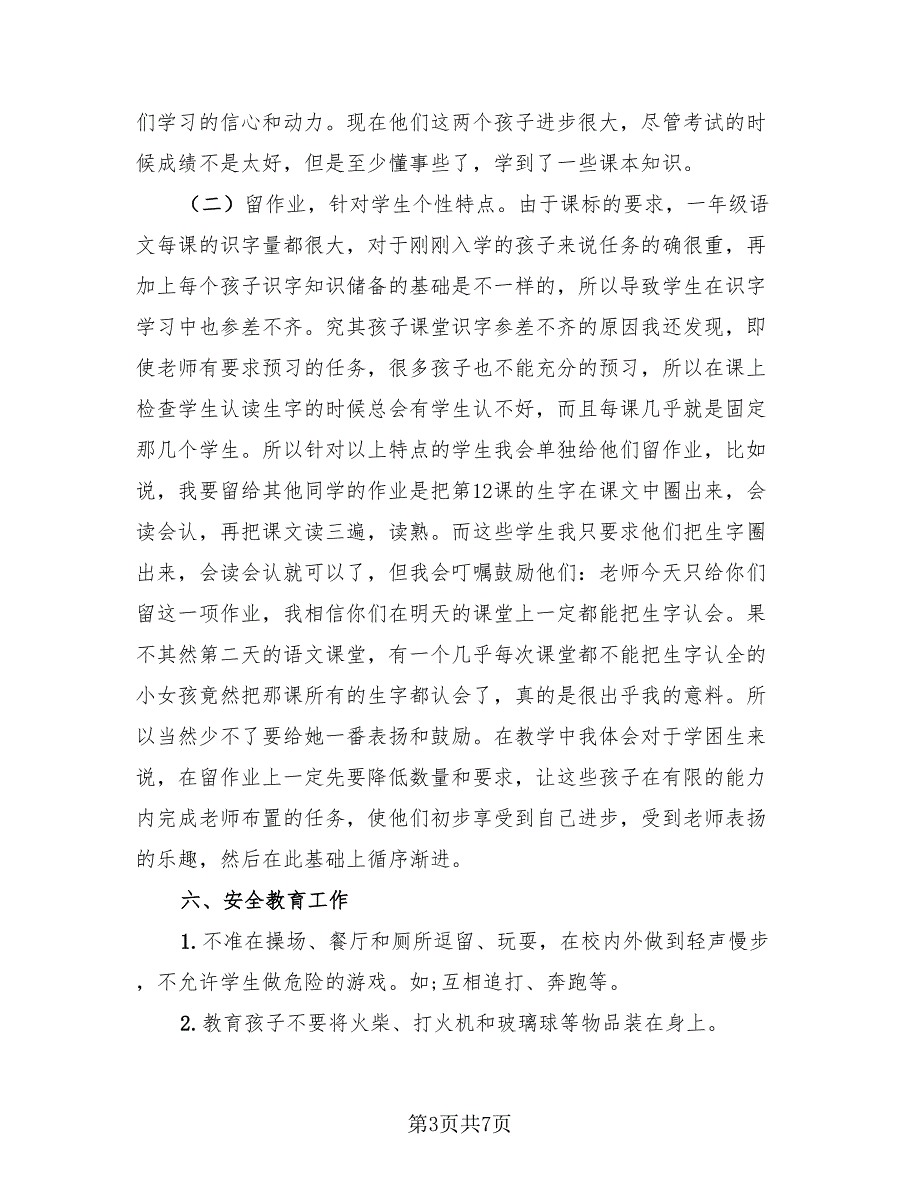 们学习的信心和动力。现在他们这两个孩子进步很大，尽管考试的时
候成绩不是太好，但是至少懂事些了，学到了一些课本知识。
（二）留作业，针对学生个性特点。由于课标的要求，一年级语
文每课的识字量都很大，对于刚刚入学的孩子来说任务的确很重，再
加上每个孩子识字知识储备的基础是不一样的，所以导致学生在识字
学习中也参差不齐。究其孩子课堂识字参差不齐的原因我还发现，即
使老师有要求预习的任务，很多孩子也不能充分的预习，所以在课上
检查学生认读生字的时候总会有学生认不好，而且每课几乎就是固定
那几个学生。所以针对以上特点的学生我会单独给他们留作业，比如
说，我要留给其他同学的作业是把第12课的生字在课文中圈出来，会
读会认，再把课文读三遍，读熟。而这些学生我只要求他们把生字圈
出来，会读会认就可以了，但我会叮嘱鼓励他们：老师今天只给你们
留这一项作业，我相信你们在明天的课堂上一定都能把生字认会。果
不其然第二天的语文课堂，有一个几乎每次课堂都不能把生字认全的
小女孩竟然把那课所有的生字都认会了，真的是很出乎我的意料。所
以当然少不了要给她一番表扬和鼓励。在教学中我体会对于学困生来
说，在留作业上一定先要降低数量和要求，让这些孩子在有限的能力
内完成老师布置的任务，使他们初步享受到自己进步，受到老师表扬
的乐趣，然后在此基础上循序渐进。
六、安全教育工作
1.不准在操场、餐厅和厕所逗留、玩耍，在校内外做到轻声慢步
，不允许学生做危险的游戏。如;互相追打、奔跑等。
2.教育孩子不要将火柴、打火机和玻璃球等物品装在身上。
第3页共7页